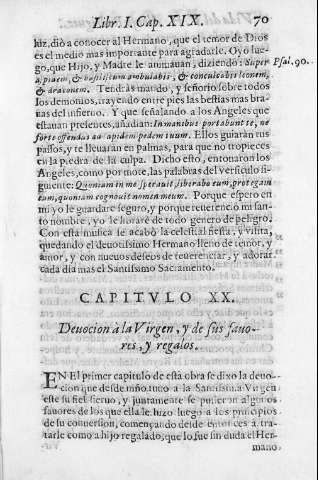 Libr. I. Cap. XIX. 70
luz, dió a conocer al Hermano, que el temor de Dios
es el medio mas importante para agradarle. Oyo lue-
go, que Hijo, y Madre le animauan, diziendo: Super Psal. 90.
aspidem, & basiliscum ambulabis, & conculcabis leonem,
& draconem. Tendràs mando, y señorio sobre todos
los demonios, trayendo entre pies las bestias mas bra-
uas del infierno. Y que señalando a los Angeles que
estauan presentes, añadian: In manibus portabunt te, ne
forte offendas ad lapidem pedem tuum. Ellos guiaràn tus
passos, y te lleuaràn en palmas, para que no tropieces
en la piedra de la culpa. Dicho esto, entonaron los
Angeles, como por mote, las palabras del versiculo si-
guiente: Quoniam in me sperauit, liberabo eum, protegam
eum, quoniam cognouit nomen meum. Porque esperò en
mi yo le guardarè seguro, y porque reuerenciò mi san-
to nombre, yo le librarè de todo genero de peligro.
Con esta musica se acabò la celestial fiesta, y visita,
quedando el deuotissimo Hermano lleno de temor, y
amor, y con nueuos deseos de reuerenciar, y adorar
cada dia mas el Santissimo Sacramento.
CAPITVLO XX.
Deuocion à la Virgen, y de sus fauo-
res, y regalos.
EN El primer capitulo de esta obra se dixo la deuo-
cion que desde niño tuuo a la Santissima Virgen
este su fiel sieruo, y juntamente se pusieron algunos
fauores de los que ella le hizo luego a los principios
de su conuersion, començando desde entonces à tra-
tarle como a hijo regalado, que lo fue sin duda el Her-
mano